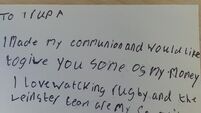 TO
I Made my communion and would like
to give you some of my Money
I love watching rugby and the
Leinster team are my